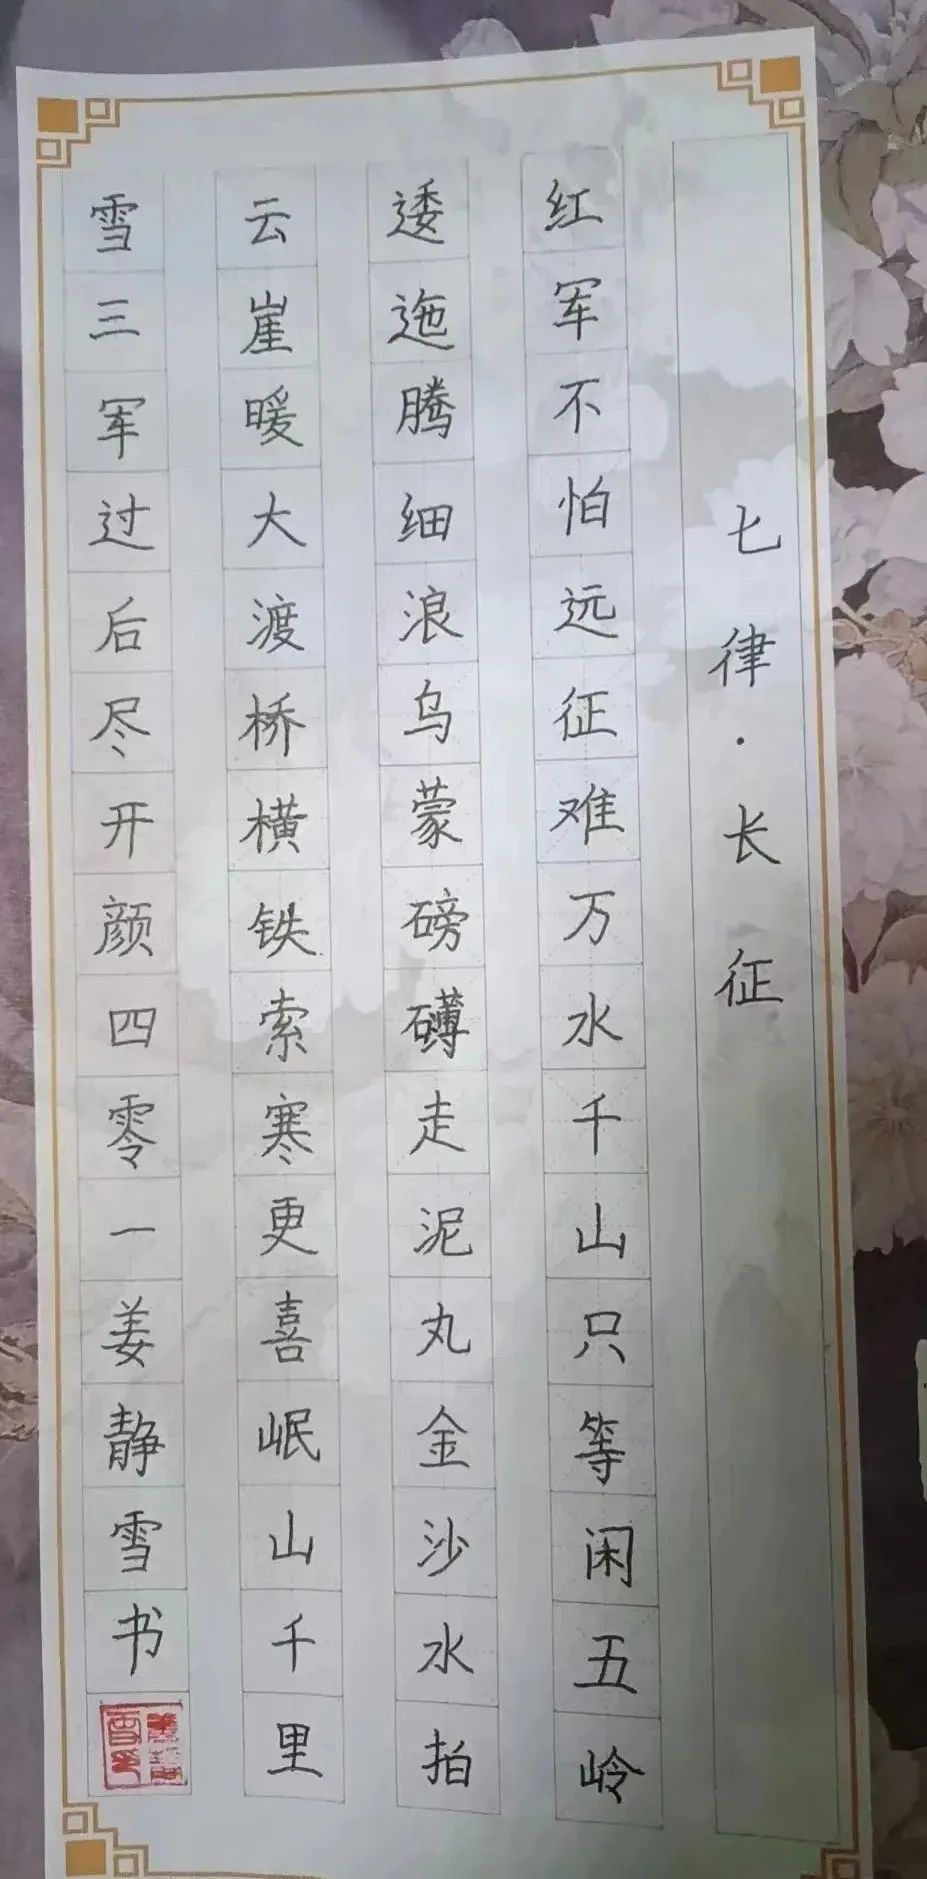 七律·长征
红军不怕远征难万水千山只等闲五岭
逶迤腾细浪乌蒙磅礴走泥丸金沙水拍
云崖暖大渡桥横铁索寒更喜岷山千里
雪三军过后尽开颜四零一姜静雪书